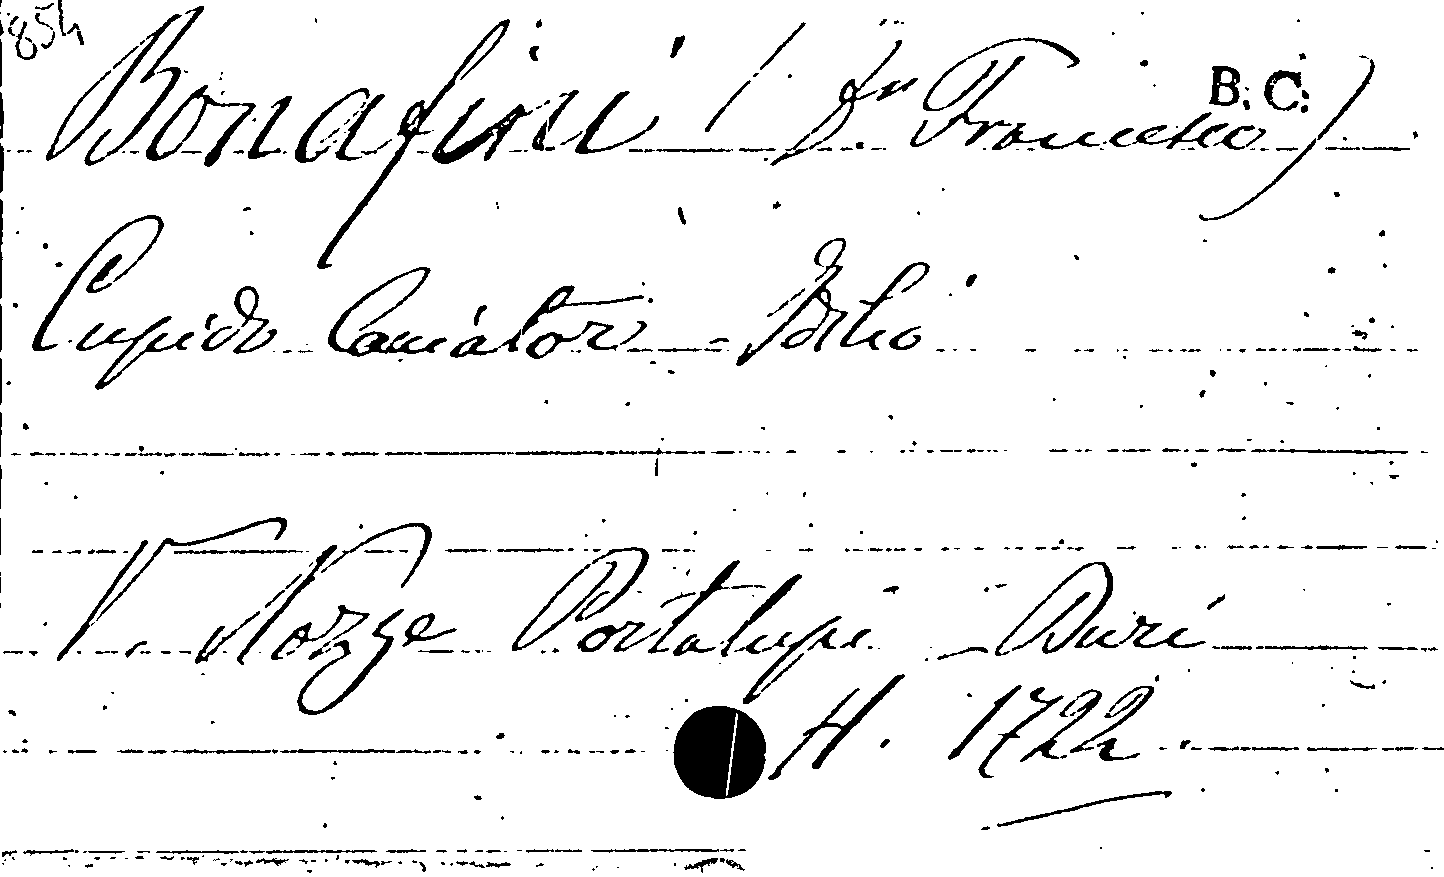 854
Bonafini (Dr. Francesco)
B. C.
Cupido Caciator - Idilio
V. Nozze Portalupi - Duri
H. 1722.